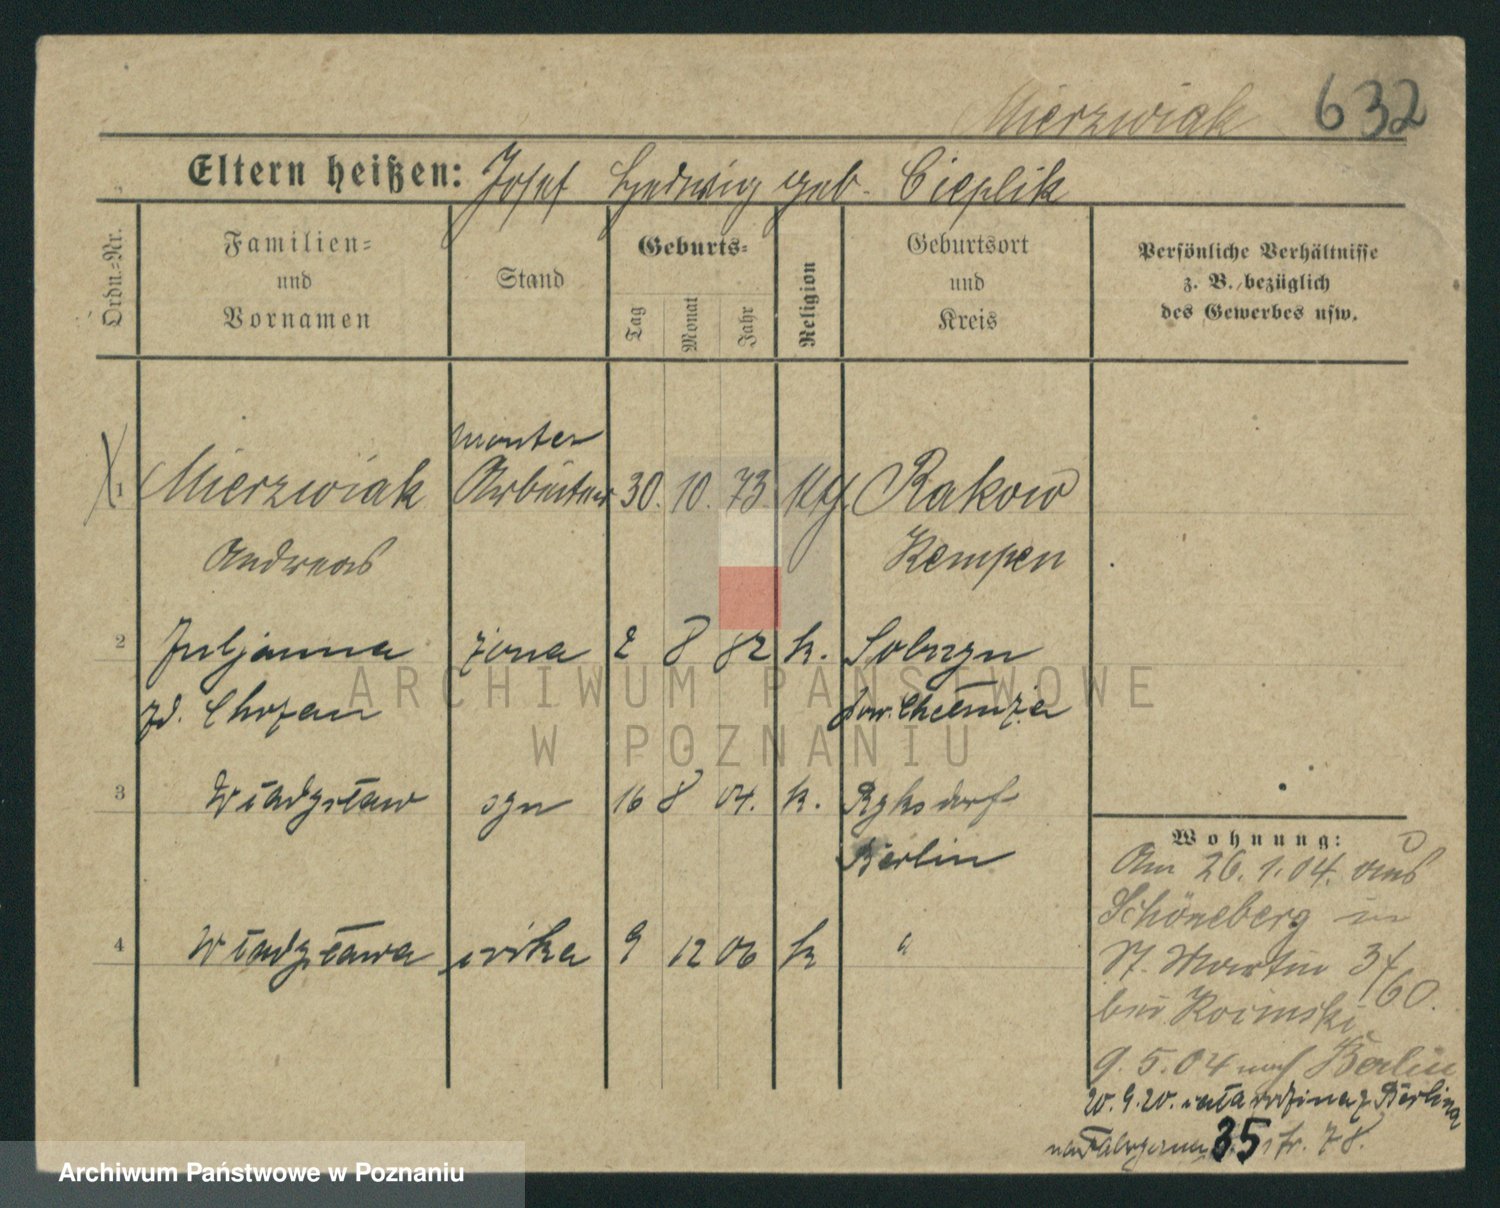 Mierzwiak 632
Eltern heißen: Josef Hedwig geb. Cieplik
Ordn.-Nr.
Familien-
und
Vornamen
Stand
Geburts-
Tag
Monat
Jahr
Religion
Geburtsort
und
Kreis
Persönliche Verhältnisse
z. B. bezüglich
des Gewerbes usw.
monter
1 Mierzwiak Arbeiter 30. 10. 73. kth. Rakow
Andreas Kempen
2 Juljanna żona 2 8 82 k.
zd.
pow. Chełmża
3 Władysław syn 16 8 04. k. Ryksdorf
Berlin
4 Władysława córka 9 12 06 k "
Wohnung:
Am 26.1.04. aus
Schöneberg in
St. Martin 34/60.
bei
9.5.04 nach Berlin
20.9.20. cała rodzina z Berlina
na 35 str. 78.
ARCHIWUM PAŃSTWOWE
W POZNANIU
Archiwum Państwowe w Poznaniu